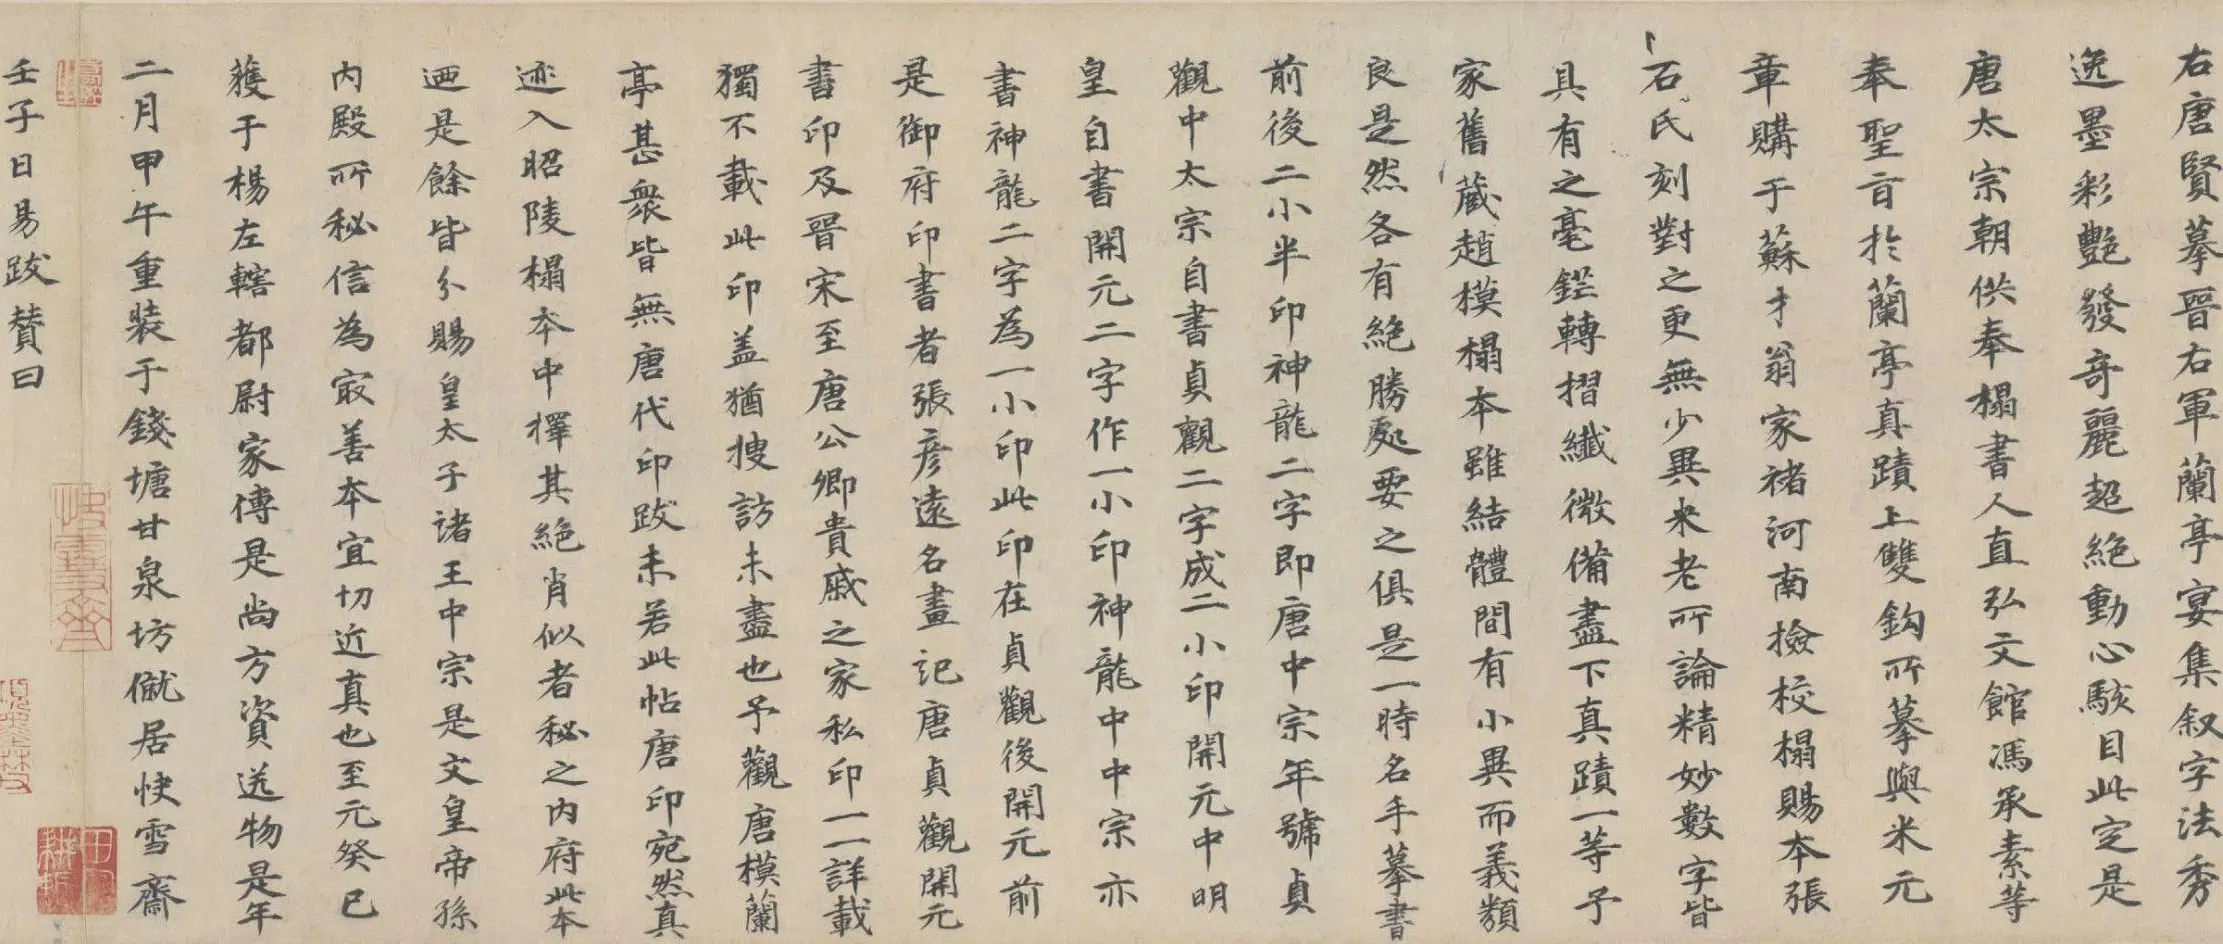 右唐賢摹晉右軍蘭亭宴集叙字法秀
逸墨彩艷發奇麗超絕動心駭目此定是
唐太宗朝供奉榻書人直弘文館馮承素等
奉聖旨於蘭亭真蹟上雙鈎所摹與米元
章購于蘇才翁家禇河南撿挍榻賜本張
氏石刻對之更無少異米老所論精妙數字皆
具有之毫鋩轉摺纖微備盡下真蹟一等予
家舊藏趙模榻本雖結體間有小異而義類
良是然各有絕勝處要之俱是一時名手摹書
前後二小半印神龍二字即唐中宗年號貞
觀中太宗自書貞觀二字成二小印開元中明
皇自書開元二字作一小印神龍中中宗亦
書神龍二字為一小印此印在貞觀後開元前
是御府印書者張彥遠名畫記唐貞觀開元
書印及晉宋至唐公卿貴戚之家私印一一詳載
獨不載此印盖猶搜訪未盡也予觀唐模蘭
亭甚衆皆無唐代印跋未若此帖唐印宛然真
迹入昭陵榻本中擇其絕肖似者秘之內府此本
廼是餘皆分賜皇太子諸王中宗是文皇帝孫
內殿所秘信為冣善本宜切近真也至元癸巳
獲于楊左轄都尉家傳是尚方資送物是年
二月甲午重裝于錢塘甘泉坊僦居快雪齋
壬子日易跋贊曰
快雪齋